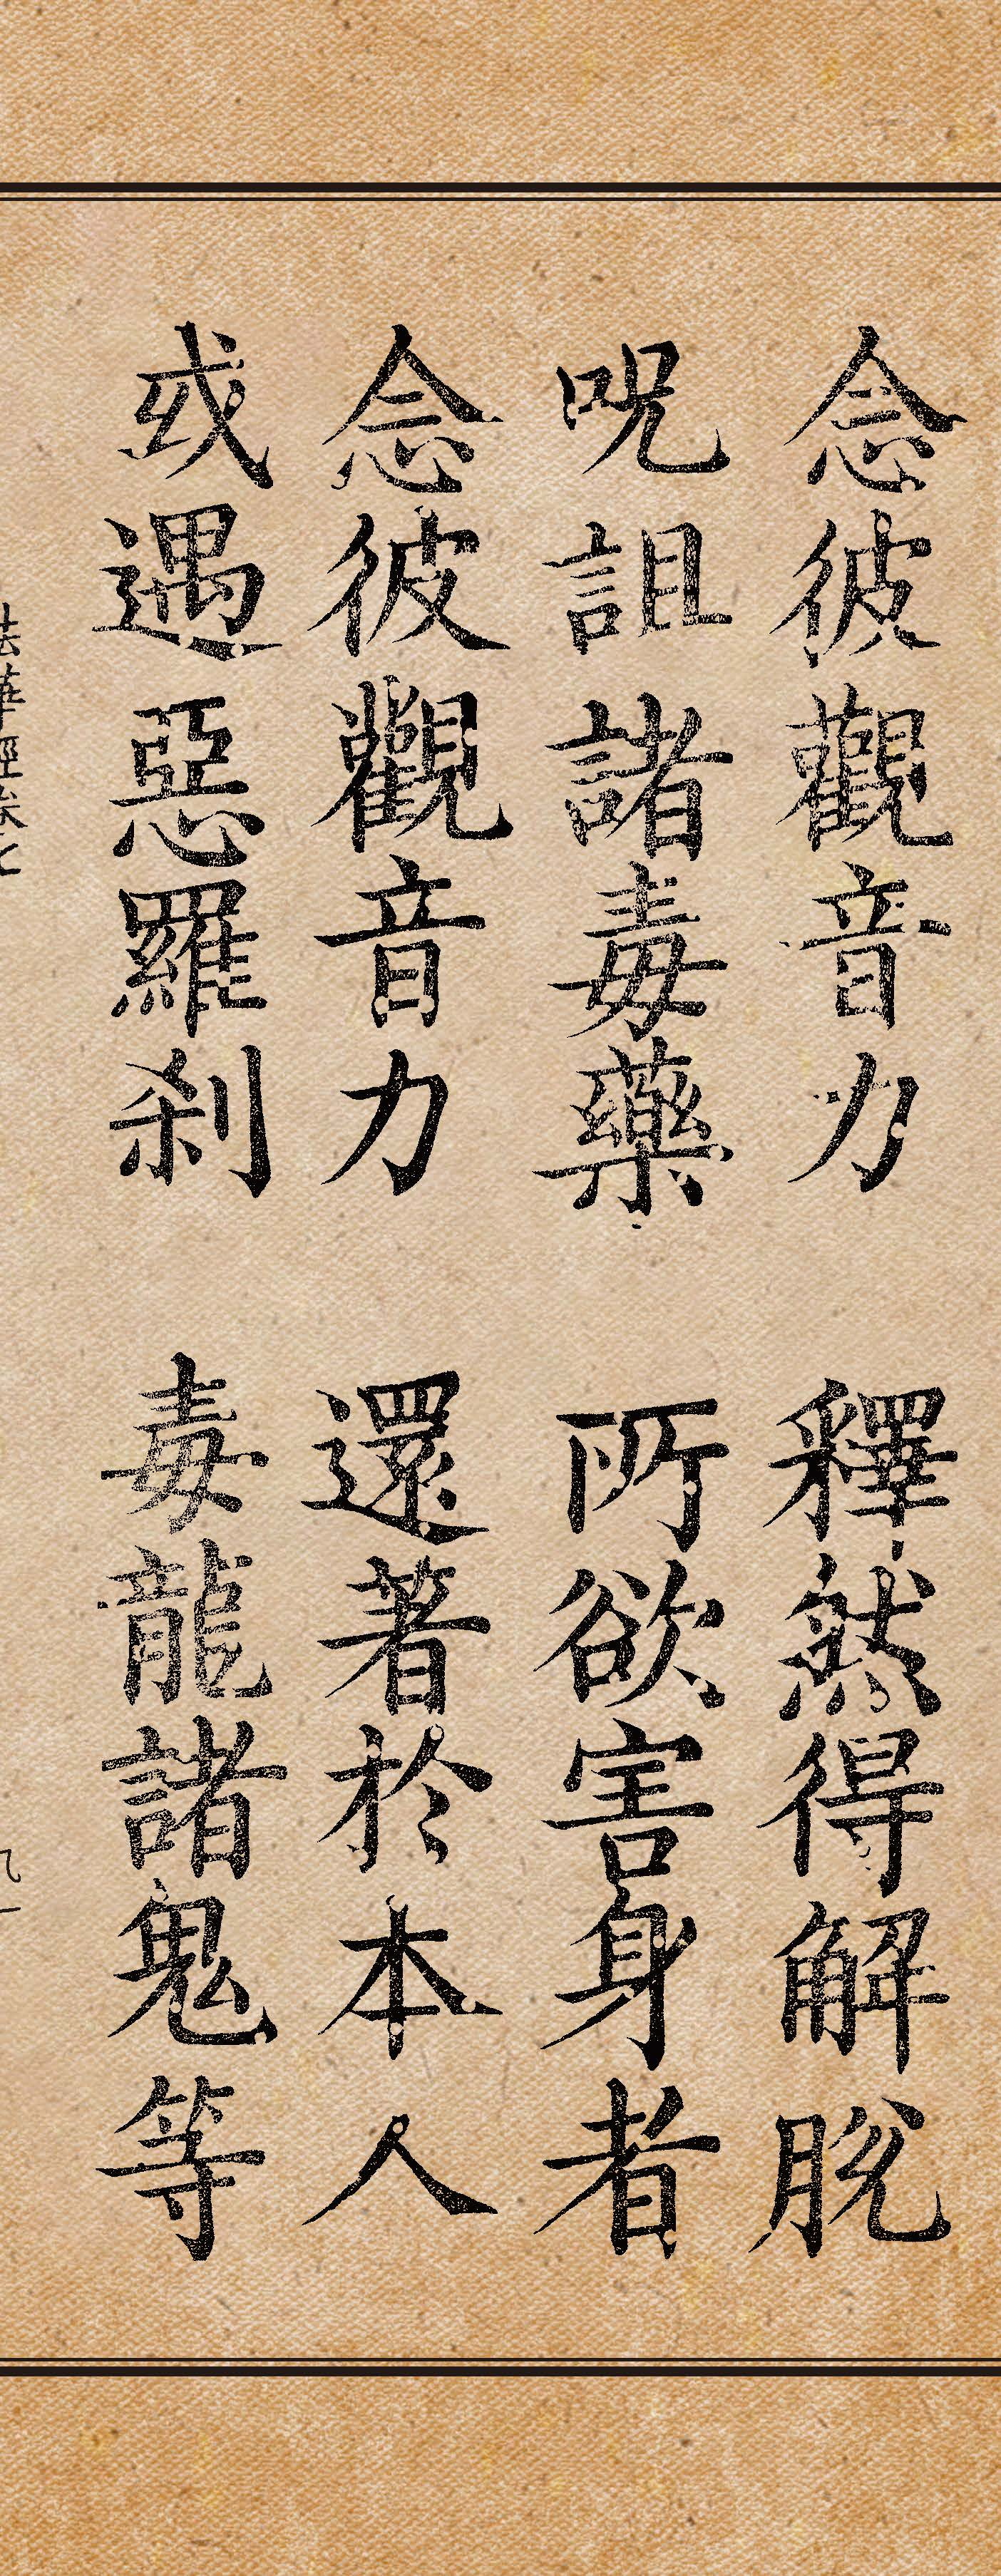 念彼觀音力 釋然得解脫
呪詛諸毒藥 所欲害身者
念彼觀音力 還著於本人
或遇惡羅剎 毒龍諸鬼等
法華經卷七